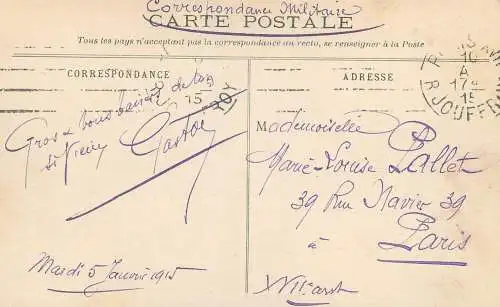 Correspondance Militaire
CARTE POSTALE
Tous les pays n'acceptant pas la correspondance au recto, se renseigner à la Poste
CORRESPONDANCE
ADRESSE
Gros & bons baisers de ton
Gaston
Mardi 5 Janvier 1915
Mademoiselle
Marie-Louise Pallet
39 Rue Navier 39
à
Paris
XVII arrt